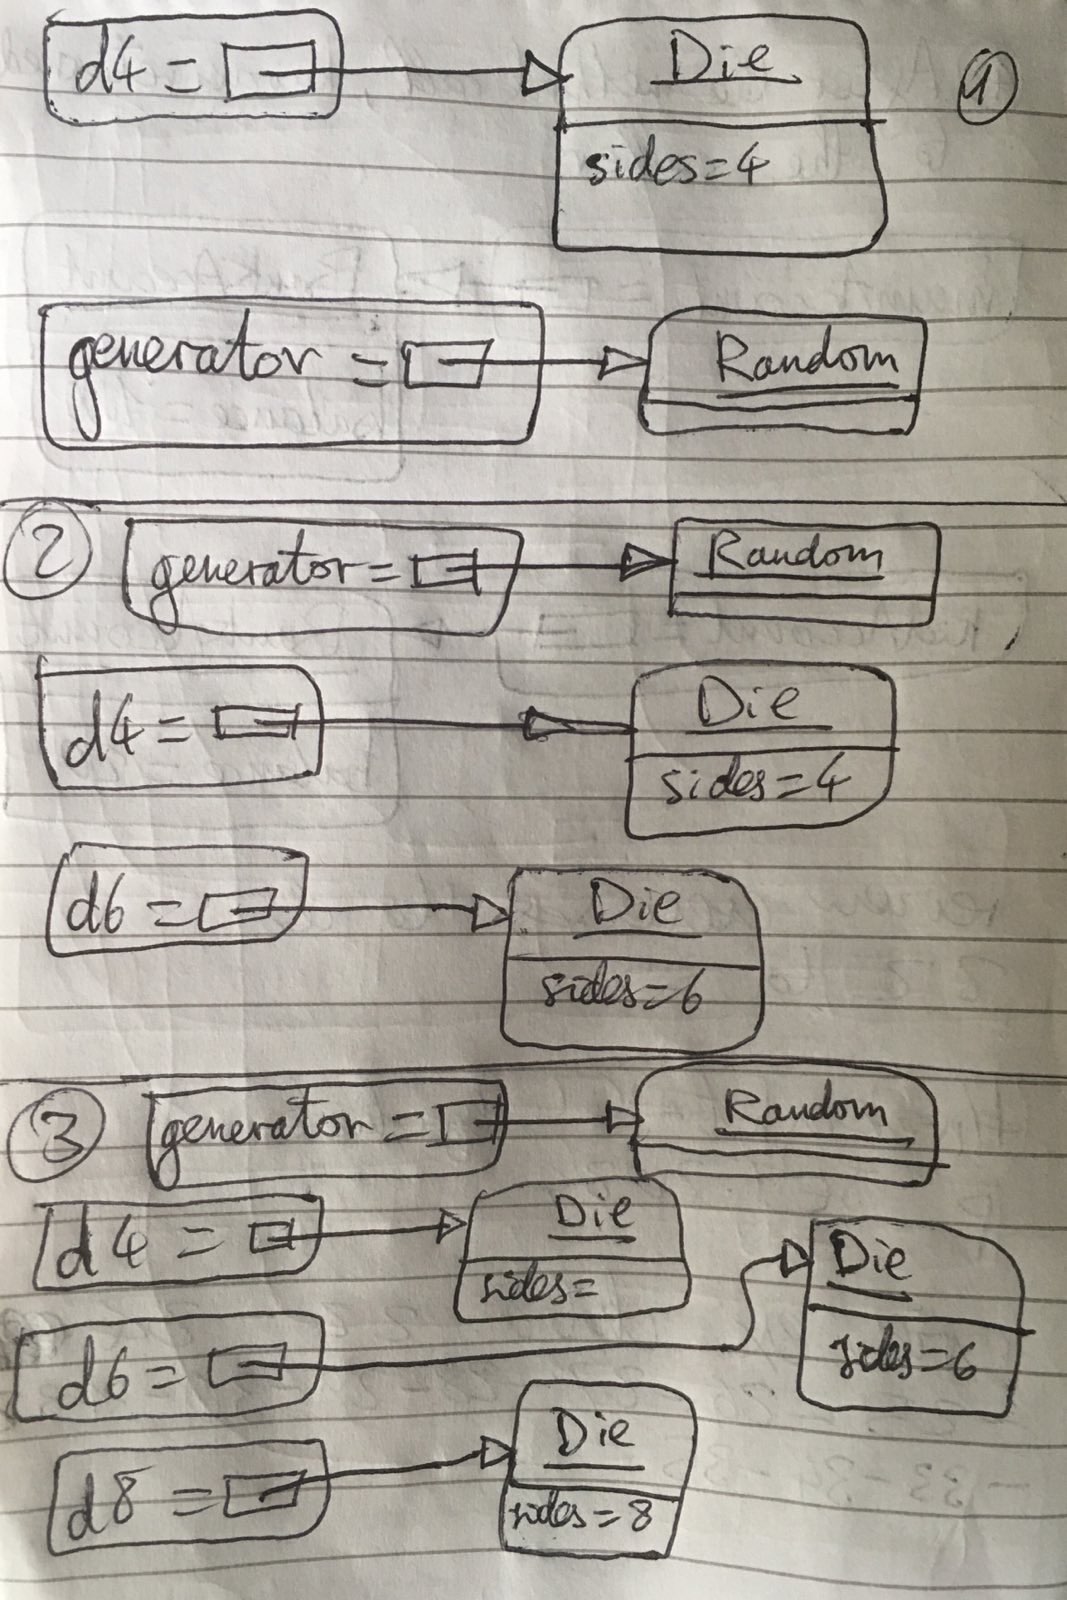 d4 = Die ①
sides=4
generator = Random
② generator= Random
d4= Die
sides=4
d6= Die
sides=6
③ generator= Random
d4 = Die
sides=
Die
d6= sides=6
d8= Die
sides=8